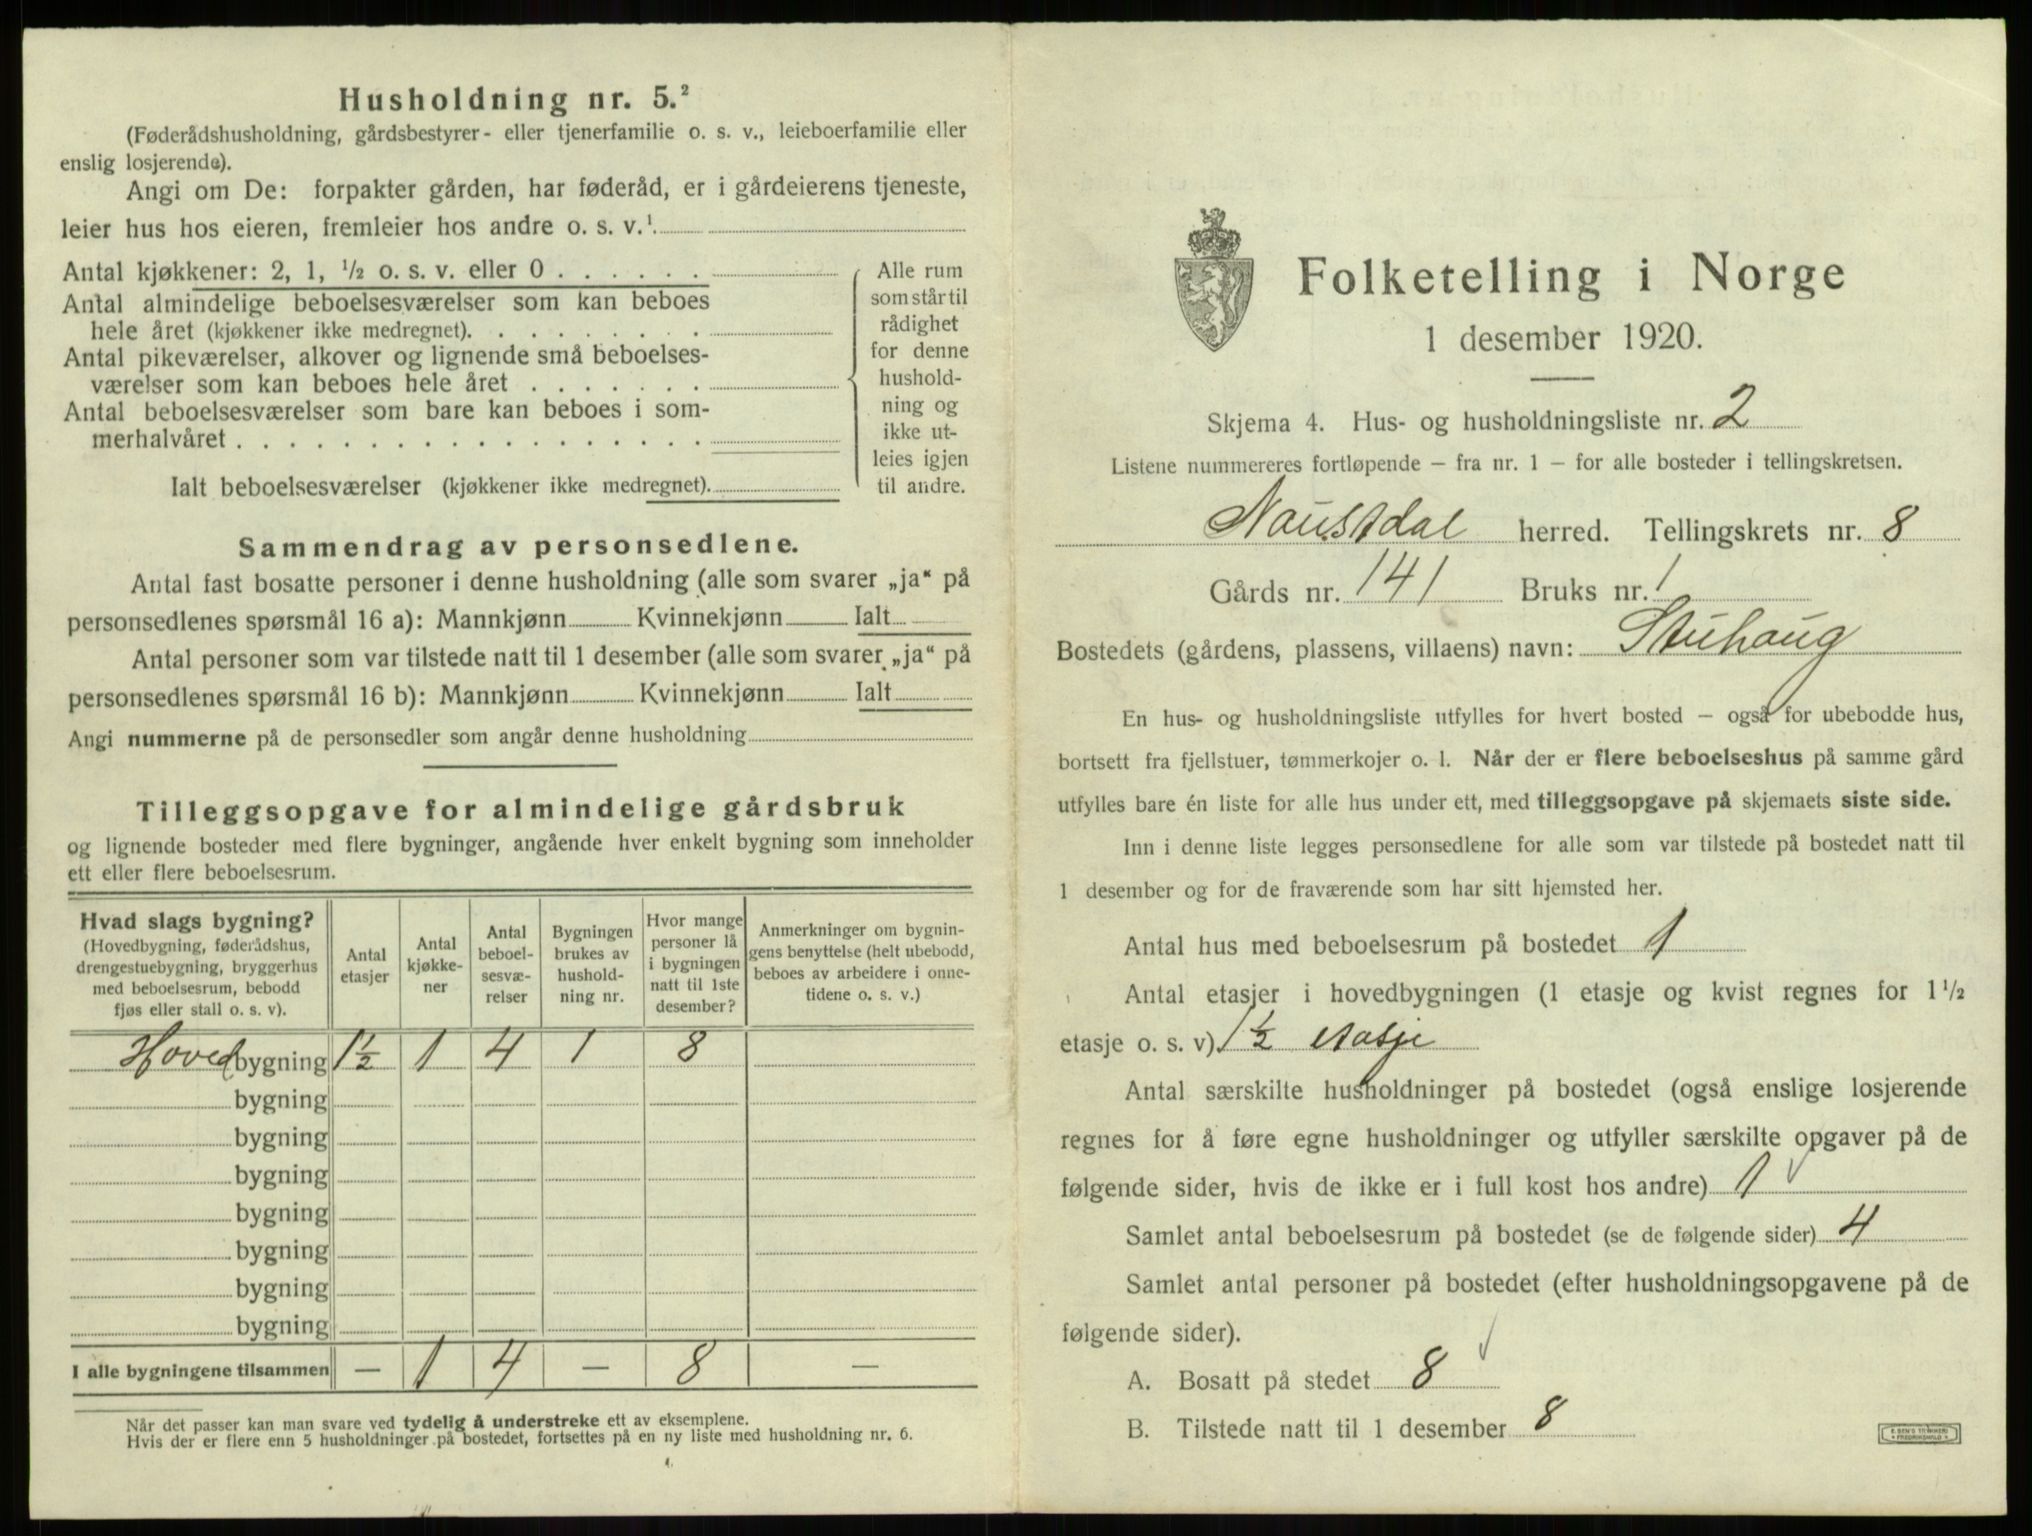 Husholdning nr. 5.²
(Føderådshusholdning, gårdsbestyrer- eller tjenerfamilie o. s. v., leieboerfamilie eller
enslig losjerende).
Angi om De: forpakter gården, har føderåd, er i gårdeierens tjeneste,
leier hus hos eieren, fremleier hos andre o. s. v.¹
Antal kjøkkener: 2, 1, ½ o. s. v. eller 0 . . . . . .
Antal almindelige beboelsesværelser som kan beboes
hele året (kjøkkener ikke medregnet). . . . . . . . .
Antal pikeværelser, alkover og lignende små beboelses-
værelser som kan beboes hele året . . . . . . .
Antal beboelsesværelser som bare kan beboes i som-
merhalvåret . . . . . . . . . . . . . . . . . .
Ialt beboelsesværelser (kjøkkener ikke medregnet).
Alle rum
som står til
rådighet
for denne
hushold-
ning og
ikke ut-
leies igjen
til andre.
Sammendrag av personsedlene.
Antal fast bosatte personer i denne husholdning (alle som svarer „ja“ på
personsedlenes spørsmål 16 a): Mannkjønn Kvinnekjønn Ialt
Antal personer som var tilstede natt til 1 desember (alle som svarer „ja“ på
personsedlenes spørsmål 16 b): Mannkjønn Kvinnekjønn Ialt
Angi nummerne på de personsedler som angår denne husholdning
Tilleggsopgave for almindelige gårdsbruk
og lignende bosteder med flere bygninger, angående hver enkelt bygning som inneholder
ett eller flere beboelsesrum.
Hvad slags bygning?
(Hovedbygning, føderådshus,
drengestuebygning, bryggerhus
med beboelsesrum, bebodd
fjøs eller stall o. s. v).
Antal
etasjer
Antal
kjøkke-
ner
Antal
beboel-
sesvæ-
relser
Bygningen
brukes av
hushold-
ning nr.
Hvor mange
personer lå
i bygningen
natt til 1ste
desember?
Anmerkninger om bygnin-
gens benyttelse (helt ubebodd,
beboes av arbeidere i onne-
tidene o. s. v.)
Hovedbygning 1½ 1 4 1 8
bygning
bygning
bygning
bygning
bygning
bygning
bygning
I alle bygningene tilsammen — 1 4 — 8 —
Når det passer kan man svare ved tydelig å understreke ett av eksemplene.
Hvis der er flere enn 5 husholdninger på bostedet, fortsettes på en ny liste med husholdning nr. 6.
Folketelling i Norge
1 desember 1920.
Skjema 4. Hus- og husholdningsliste nr. 2
Listene nummereres fortløpende – fra nr. 1 – for alle bosteder i tellingskretsen.
Naustdal herred. Tellingskrets nr. 8
Gårds nr. 141 Bruks nr. 1
Bostedets (gårdens, plassens, villaens) navn: Stuhaug
En hus- og husholdningsliste utfylles for hvert bosted – også for ubebodde hus,
bortsett fra fjellstuer, tømmerkojer o. l. Når der er flere beboelseshus på samme gård
utfylles bare én liste for alle hus under ett, med tilleggsopgave på skjemaets siste side.
Inn i denne liste legges personsedlene for alle som var tilstede på bostedet natt til
1 desember og for de fraværende som har sitt hjemsted her.
Antal hus med beboelsesrum på bostedet 1
Antal etasjer i hovedbygningen (1 etasje og kvist regnes for 1½
etasje o. s. v). 1½ etasje
Antal særskilte husholdninger på bostedet (også enslige losjerende
regnes for å føre egne husholdninger og utfyller særskilte opgaver på de
følgende sider, hvis de ikke er i full kost hos andre) 1
Samlet antal beboelsesrum på bostedet (se de følgende sider) 4
Samlet antal personer på bostedet (efter husholdningsopgavene på de
følgende sider).
A. Bosatt på stedet 8
B. Tilstede natt til 1 desember 8